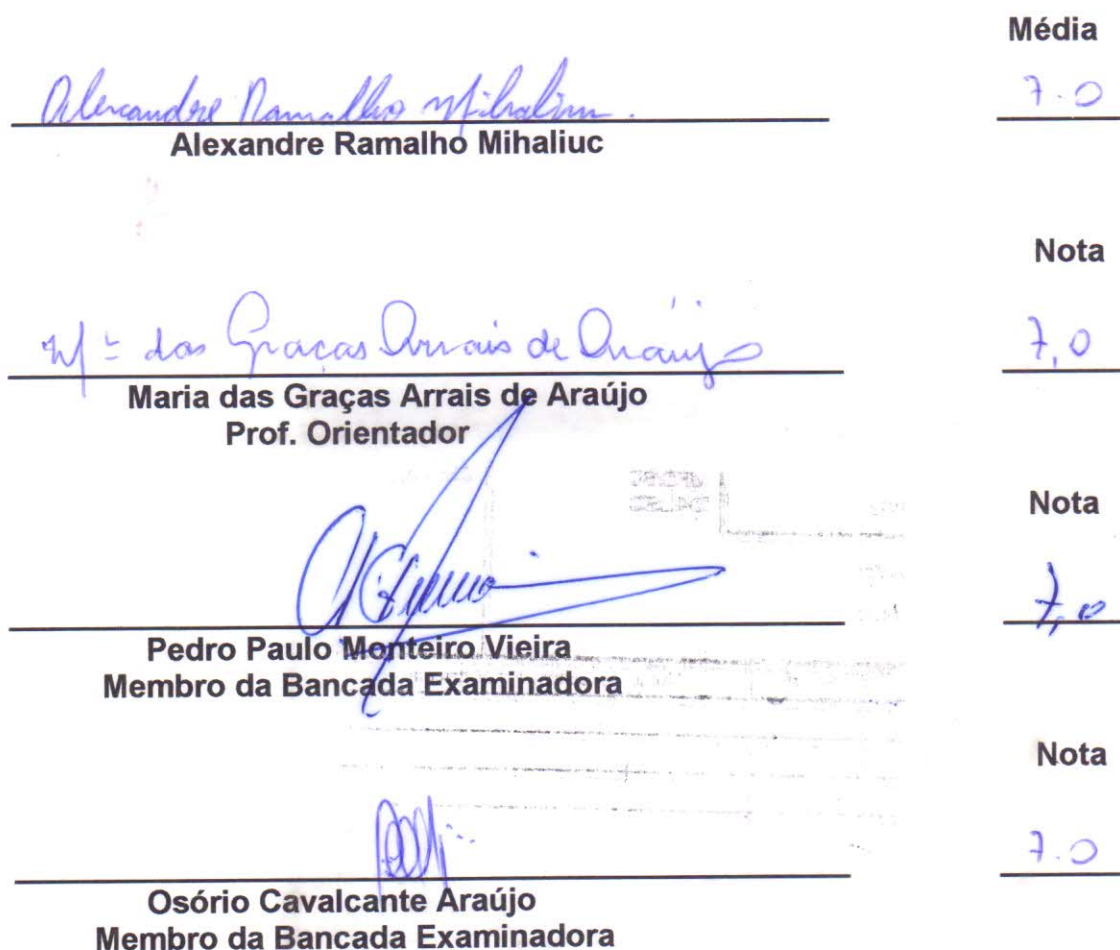 Média
Alexandre Ramalho Mihaliuc. 7.0
Alexandre Ramalho Mihaliuc
Nota
Mª das Graças Arrais de Araújo 7,0
Maria das Graças Arrais de Araújo
Prof. Orientador
Nota
7,0
Pedro Paulo Monteiro Vieira
Membro da Bancada Examinadora
Nota
7.0
Osório Cavalcante Araújo
Membro da Bancada Examinadora